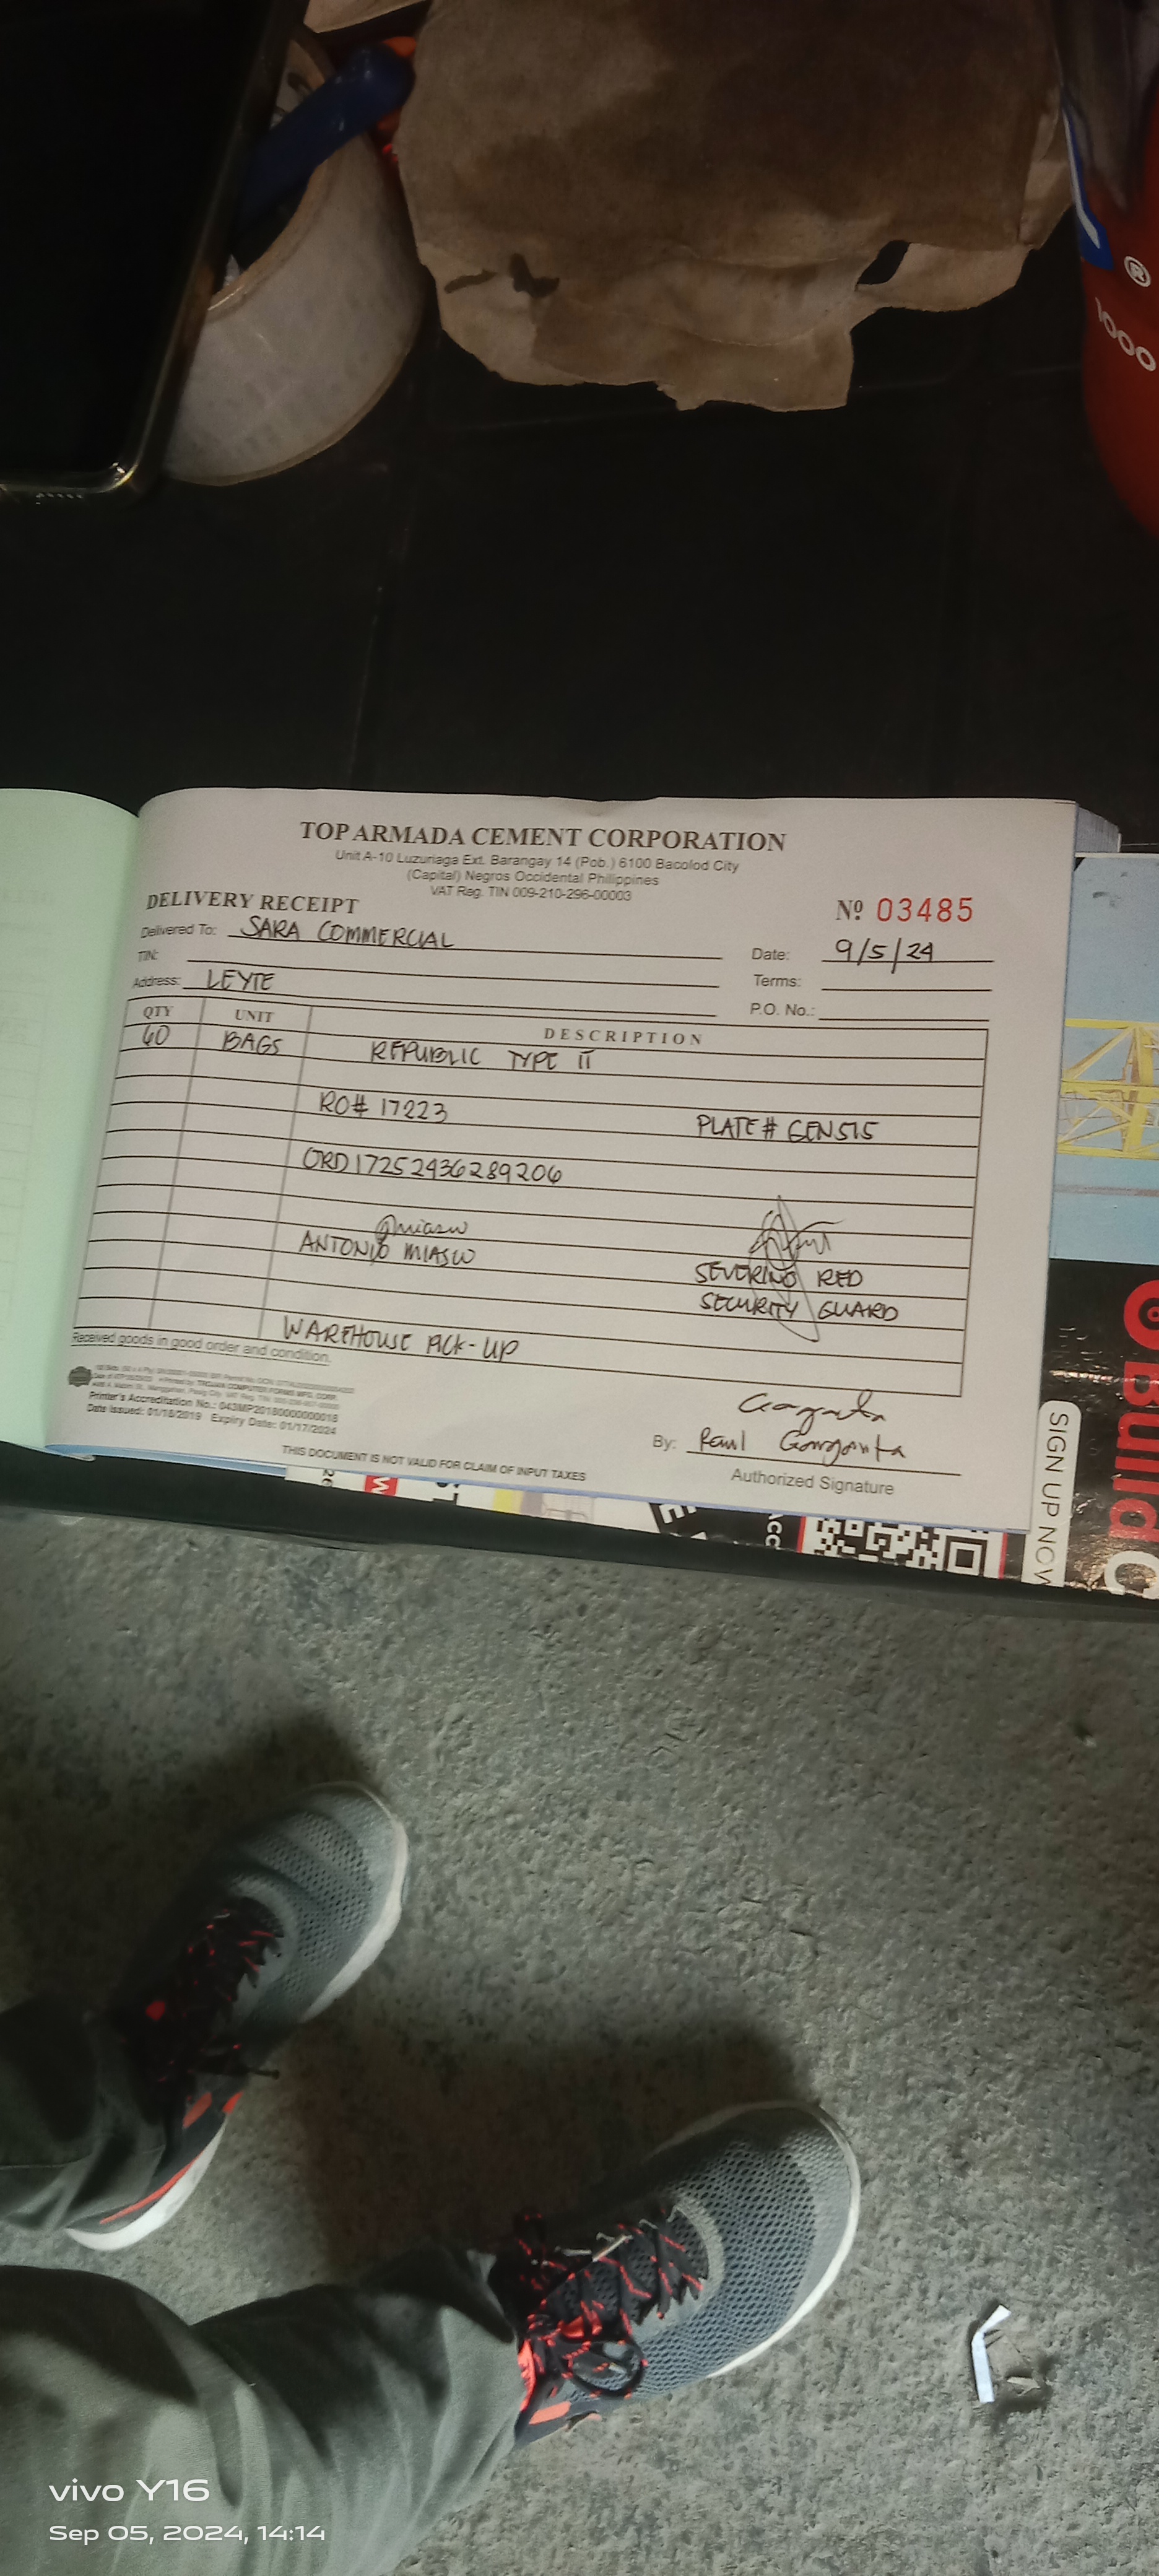 ®
1000
TOP ARMADA CEMENT CORPORATION
Unit A-10 Luzuriaga Ext. Barangay 14 (Pob.) 6100 Bacolod City
(Capital) Negros Occidental Philippines
VAT Reg. TIN 009-210-296-00003
DELIVERY RECEIPT
Nº 03485
Delivered To: SARA COMMERCIAL
Date: 9/5/24
TIN:
Terms:
Address: LEYTE
P.O. No.:
QTY UNIT DESCRIPTION
60 BAGS REPUBLIC TYPE II
RO# 17223 PLATE# GEN515
ORD17252436289206
ANTONIO MIASCO
SEVERINO RED
SECURITY GUARD
WAREHOUSE PICK-UP
Received goods in good order and condition.
Printer's Accreditation No.: 043MP20180000000018
Date Issued: 01/18/2019 Expiry Date: 01/17/2024
By: Raul Gorgonta
Authorized Signature
THIS DOCUMENT IS NOT VALID FOR CLAIM OF INPUT TAXES
SIGN UP NOW
Build
vivo Y16
Sep 05, 2024, 14:14